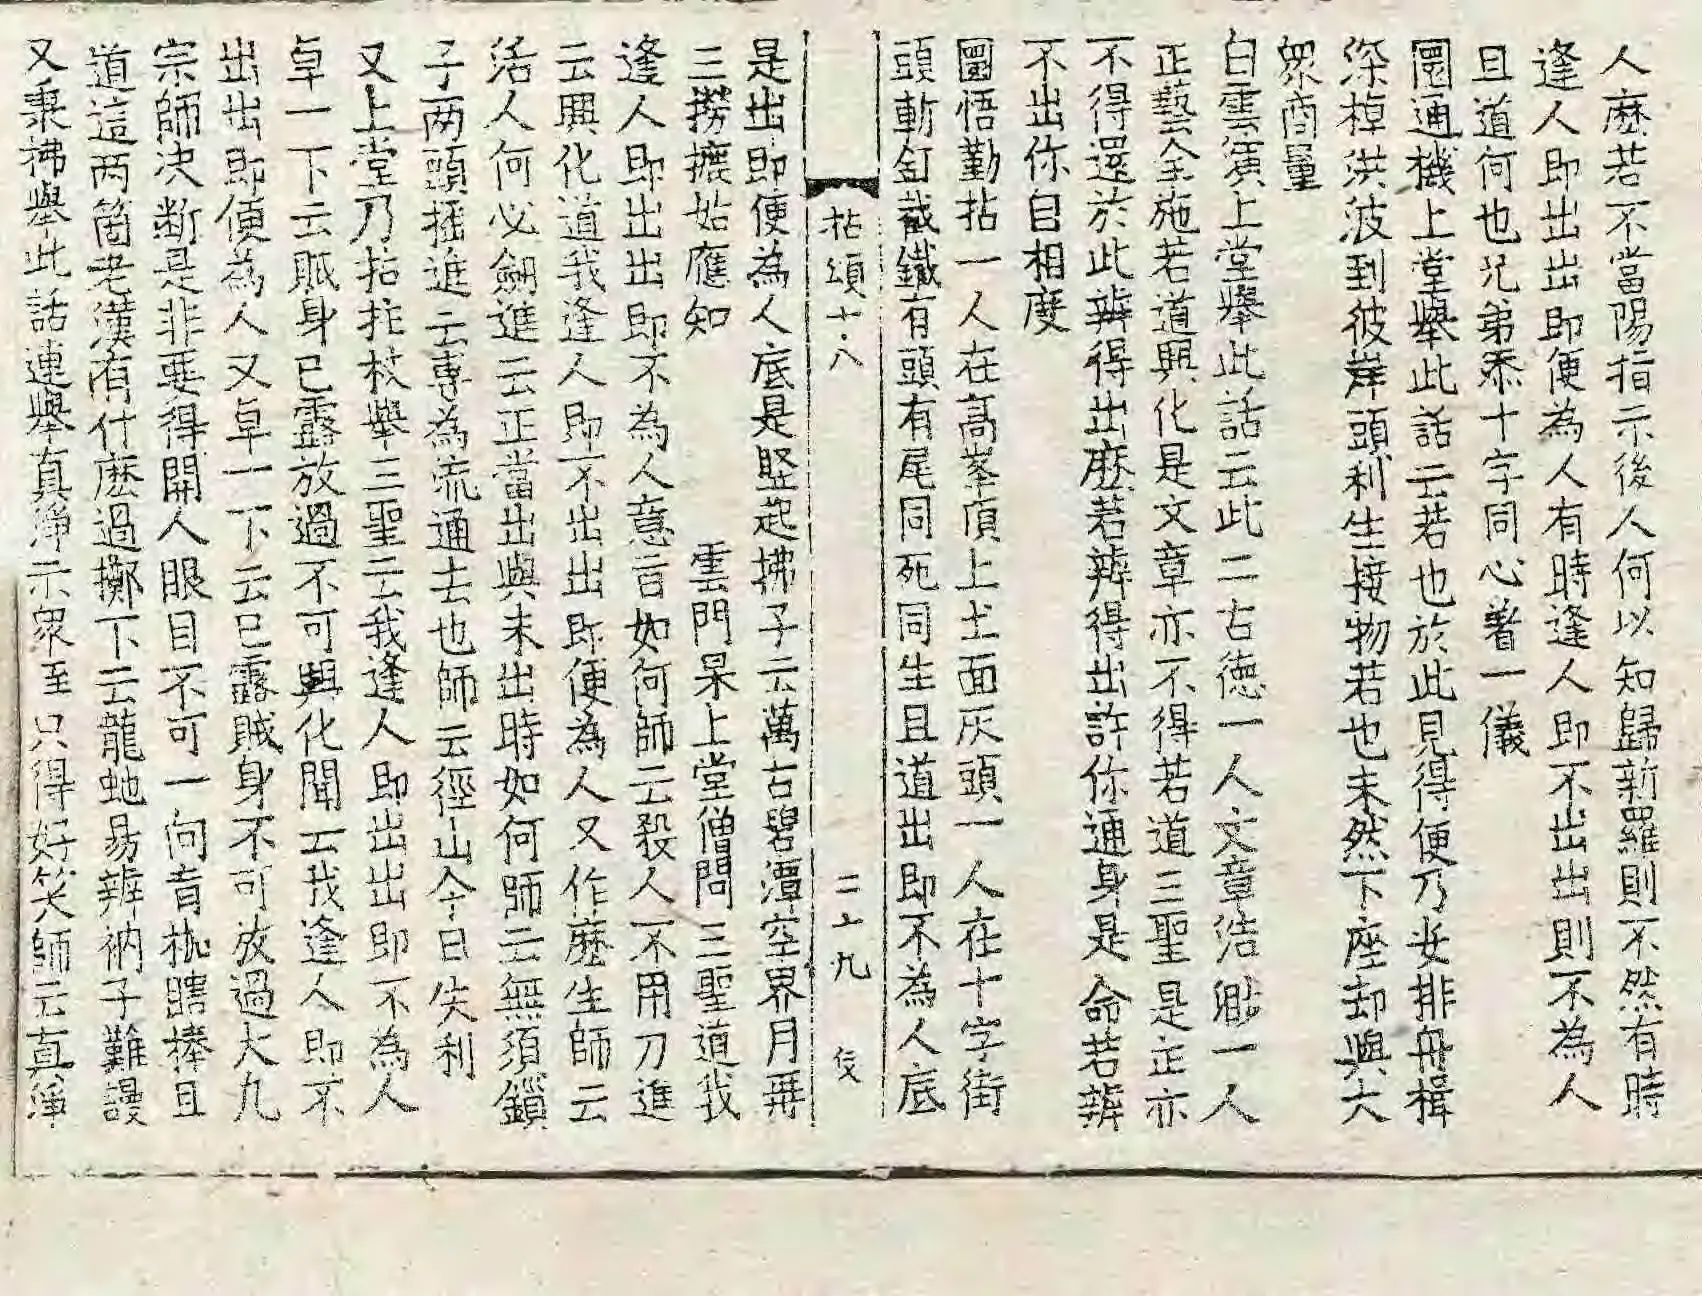 人麽若不當陽指示後人何以知歸新羅則不然有時
逢人即出出即便為人有時逢人即不出出則不為人
且道何也兄弟添十字同心著一儀
圜通機上堂舉此話云若也於此見得便乃安排舟楫
深棹洪波到彼岸頭利生接物若也未然下座却與大
眾商量
白雲演上堂舉此話云此二古德一人文章浩渺一人
正藝全施若道興化是文章亦不得若道三聖是正亦
不得還於此辨得出麽若辨得出許你通身是命若辨
不出你自相度
圜悟勤拈一人在高峯頂上土面灰頭一人在十字街
頭斬釘截鐵有頭有尾同死同生且道出即不為人底
拈頌十八 二十九
是出即便為人底是竪起拂子云萬古碧潭空界月再
三撈摝始應知 雲門杲上堂僧問三聖道我
逢人即出出即不為人意旨如何師云殺人不用刀進
云興化道我逢人即不出出即便為人又作麽生師云
活人何必劒進云正當出與未出時如何師云無須鎻
子兩頭搖進云專為流通去也師云徑山今日失利
又上堂乃拈拄杖舉三聖云我逢人即出出即不為人
卓一下云賊身已露放過不可興化聞云我逢人即不
出出即便為人又卓一下云已露賊身不可放過大凡
宗師決斷是非要得開人眼目不可一向盲枷瞎棒且
道這两箇老漢有什麽過擲下云龍虵易辨衲子難謾
又秉拂舉此話連舉真淨示眾至只得好笑師云真淨